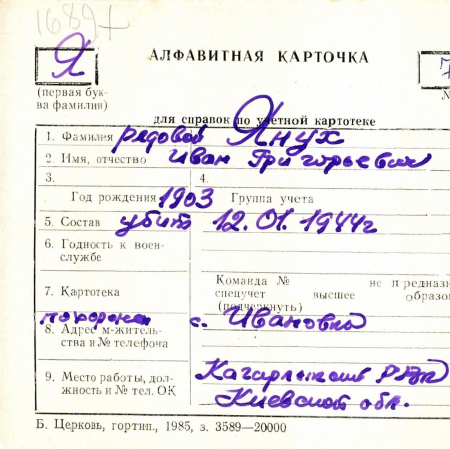 1689
АЛФАВИТНАЯ КАРТОЧКА
Я
7
(первая бук-
ва фамилии)
№
для справок по учетной картотеке
1. Фамилия рядовой Янух
2. Имя, отчество Иван Григорьевич
3. 4.
Год рождения 1903 Группа учета
5. Состав убит 12.01.1944г
6. Годность к воен-
службе
Команда № не предназ
7. Картотека спецучет высшее образо
(подчеркнуть)
похоронен с. Ивановка
8. Адрес м-житель-
ства и № телефона
9. Место работы, дол-
жность и № тел. ОК
Кагарлыкский РВК
Киевской обл.
Б. Церковь, гортип., 1985, з. 3589—20000